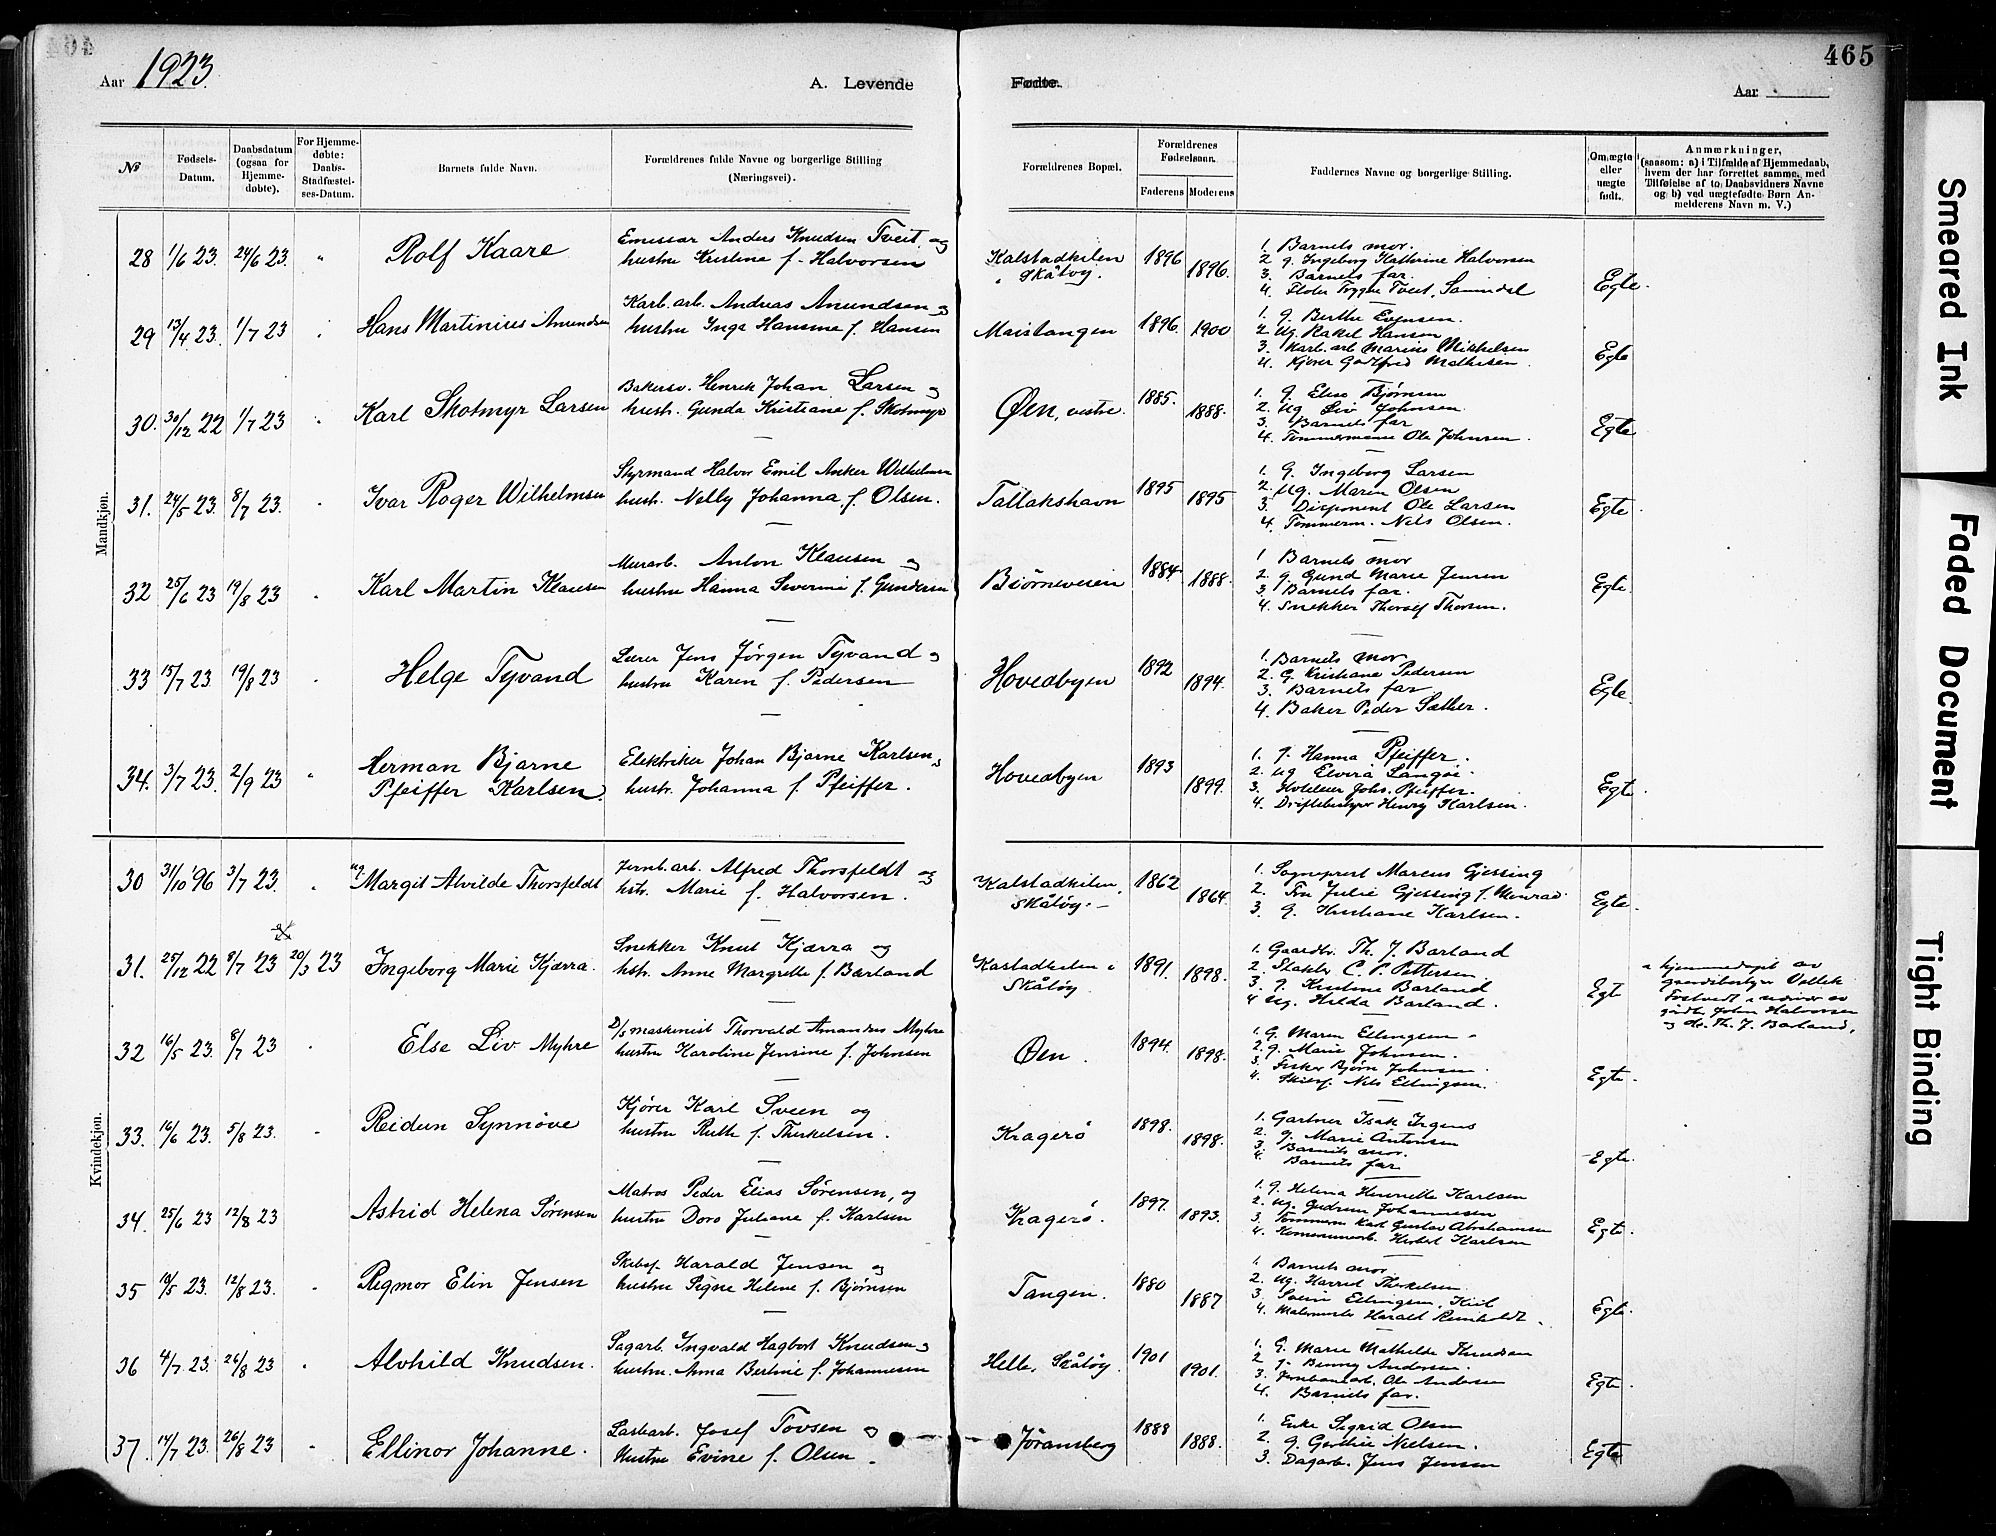 464
Aar 1923.
A. Levende
Fødte.
465
Aar
№
Fødsels-
Datum.
Daabsdatum
(ogsaa for
Hjemme-
døbte).
For Hjemme-
døbte:
Daabs-
Stadfæstel-
ses-Datum.
Barnets fulde Navn.
Forældrenes fulde Navne og borgerlige Stilling
(Næringsvei).
Forældrenes Bopæl.
Forældrenes
Fødselsaar.
Faderens Moderens
Faddernes Navne og borgerlige Stilling.
Om ægte
eller
uægte
født.
Anmærkninger,
(saasom: a) i Tilfælde af Hjemmedaab,
hvem der har forrettet samme, med
Tilføielse af to Daabsvidners Navne
og b) ved uægtefødte Børn An-
melderens Navn m. V.)
Mandkjøn.
28 1/6 23. 24/6 23. " Rolf Kaare
Emissær Anders Knudsen Tveit og
hustru Kristine f. Halvorsen
Kalstadkilen
Skåtøy.
1896 1896.
1. Barnets mor.
2. g. Ingeborg Kathrine Halvorsen
3. Barnets far.
4. Trygve Tveit,
Egte.
29 13/4 23. 1/7 23 Hans Martinius Amundsen
Karb. arb. Andreas Amundsen og
hustru Inga Hansine f. Hansen
Maistangen
1896. 1900
1. g. Berthe Evensen.
2. Ug. Rakel Hansen
3. Karb. arb Marius Mikkelsen
4. Kjører Godtfred Mathisen
Egte
30. 30/12 22 1/7 23 Karl Skotmyr Larsen
Bakersv. Henrik Johan Larsen og
hustr. Gunda Kristiane f. Skotmyr
Øen, vestre.
1885. 1888.
1. g. Elise Bjørnsen
2. ug Liv Johnsen.
3. Barnets far
4. Tømmermann Ole Johnsen.
Egte
31. 24/5 23. 8/7 23. Ivar Roger Wilhelmsen
Styrmand Halvor Emil Anker Wilhelmsen
hustr. Nelly Johanna f. Olsen.
Tallakshavn
1895 1895
1. G. Ingeborg Larsen
2. Ug. Maren Olsen
3. Disponent Ole Larsen
4. Tømmerm. Nils Olsen.
Egte
32 25/6 23 19/8 23 Karl Martin Klausen
Murarb. Anton Klausen og
hustru Hanna Severine f. Gundersen
Bjørneveien
1884 1888.
1. Barnets mor
2. g. Gund Marie Jensen
3. Barnets far.
4. Snekker Thoralf Thorsen.
Egte.
33 15/7 23 19/8 23 Helge Tyvand
Lærer Jens Jørgen Tyvand og
hustru Karen f. Pedersen
Hovedbyen
1892 1894.
1. Barnets mor
2. G. Kristiane Pedersen
3. Barnets far
4. Baker Peder Sæther.
Egte.
34. 3/7 23. 2/9 23 " Herman Bjarne
Pfeiffer Karlsen.
Elektriker Johan Bjarne Karlsen og
hustr. Johanna f. Pfeiffer.
Hovedbyen
1893 1899.
1. f. Hanna Pfeiffer.
2. ug Elvira Langøi.
3. Hoteleier Johs. Pfeiffer.
4. Driftsbestyrer Henry Karlsen.
Egte.
Kvindekjøn.
30 31/10 '96 3/7 23. ug Margit Alvilde Thorsfeldt
Jernb. arb. Alfred Thorsfeldt og
hstr. Marie f. Halvorsen.
Kalstadkilen,
Skåtøy.
1862 1864.
1. Sogneprest Marcus Gjessing
2. Fru Julie Gjessing f. Monrad
3. G. Kristiane Karlsen.
Egte.
31. 25/12 22 8/7 23 20/3 23 Ingeborg Marie Kjærra.
Snekker Knut Kjærra og
hstr. Anne Margrethe f. Barland
Kastadkilen i
Skåtøy
1891. 1898.
1. Gaardbr. Th. J. Barland
2. C. P. Pettersen
3. g. Kristine Barland
4 ug. Hilda Barland.
Egte
hjemmedøpt av
Vallek
John Halvorsen
og Th. J. Barland.
32 16/5 23. 8/7 23 Else Liv Myhre
D/s maskinist Thorvald Amandus Myhre
hustru Karoline Jensine f. Johnsen
Øen.
1894. 1898.
1. G. Maren Ellingsen
2. g. Marie Johnsen.
3. Fisker Bjørn Johnsen.
4. Skibsf. Nils Ellingsen.
Egte.
33. 16/6 23. 5/8 23. Reidun Synnøve
Kjører Karl Sveen og
hustru Ruth f. Therkelsen.
Kragerø
1898. 1898.
1. Gartner Isak Irgens
2. g. Marie Antonsen
3. Barnets mor.
4. Barnets far
Egte.
34. 25/6 23 12/8 23 Astrid Helena Sørensen
Matros Peder Elias Sørensen, og
hustru Doro Juliane f. Karlsen
Kragerø.
1897. 1893.
1. g. Helena Henriette Karlsen
2. ug. Gudrun Johannesen
3. Tømmerm Karl Gustav Abrahamsen
4. Herbert Karlsen
Egte.
35 19/5 23. 12/8 23. Regmor Elin Jensen
Skibsf. Harald Jensen og
hustru Signe Helene f. Bjørnsen
Tangen.
1880 1887
1. Barnets mor.
2. Ug. Harriet Therkelsen.
3. Svein Ellingsen, Kiil
4. Malermester Harald Reinholdt.
Egte.
36 4/7 23. 26/8 23 Alvhild Knudsen.
Sagarb. Ingvald Hagbart Knudsen og
hustru. Anna Bertine f. Johannesen
Helle, Skåtøy.
1901 1901.
1. G. Marie Mathilde Knudsen
2. g. Benny Andersen.
3. Jernbanearb. Ole Andersen
4. Barnets far.
Egte.
37. 14/7 23. 26/8 23 Ellinor Johanne.
Lastarb. Josef Tovsen og
Hustru Evine f. Olsen.
Jøransberg
1888 1888.
1. Enke Sigrid Olsen
2. g. Gerthie Nielsen.
3. Dagarb. Jens Jensen
Egte
Smeared Ink
Faded Document
Tight Binding